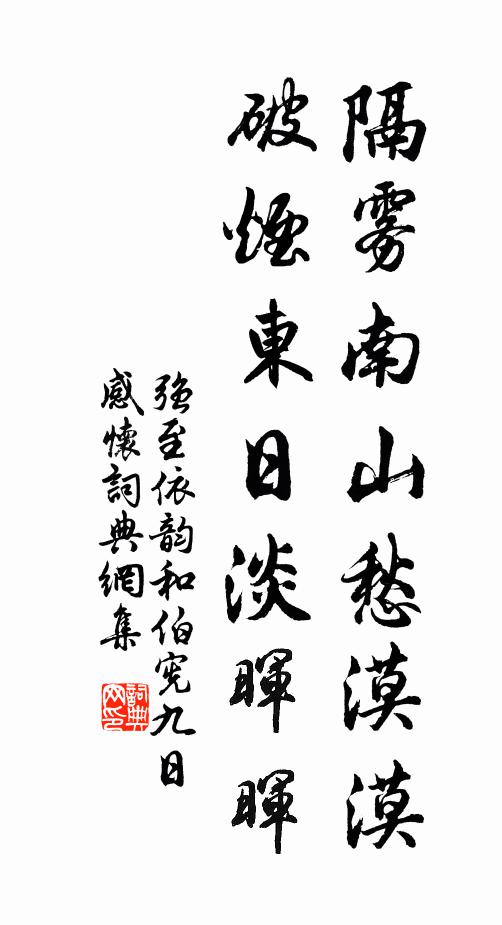 隔雾南山愁漠漠
破煙東日淡暉暉
強至依韵和伯宪九日
感懷詞典網集
詞典
网印